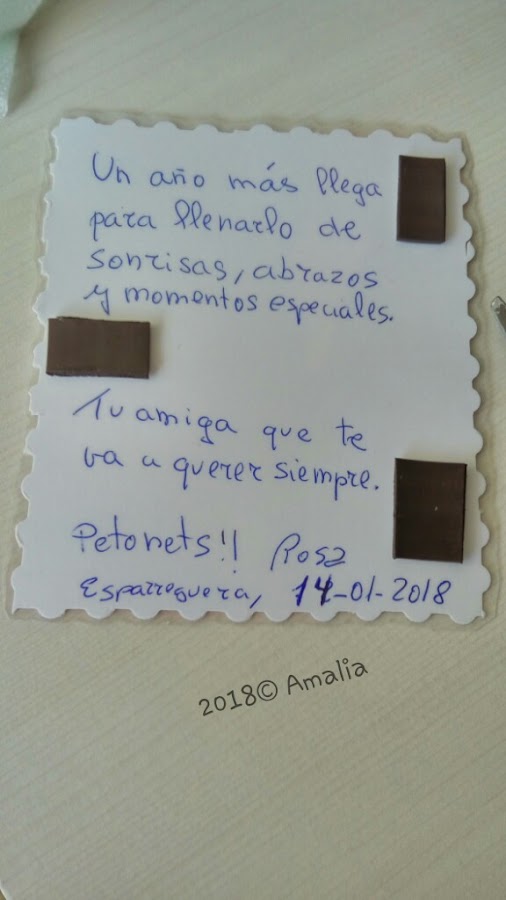 Un año más llega
para llenarlo de
sonrisas, abrazos
y momentos especiales.
Tu amiga que te
va a querer siempre.
Petonets!! Rosa
Esparreguera, 14-01-2018
2018© Amalia